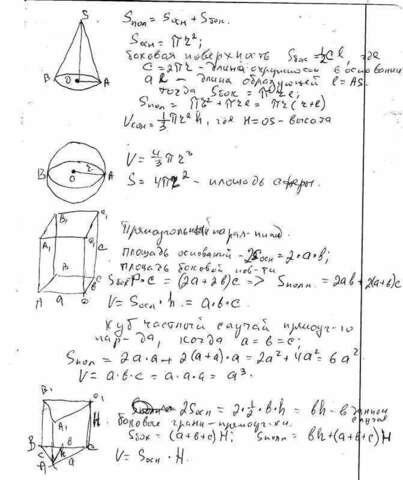 S
B O A
Sпол = Sосн + Sбок.
Sосн = πr²;
боковая поверхность Sбок = ½Cl, где
C = 2πr - длина окружности в основании
а l - длина образующей l = AS.
тогда Sбок = πrl;
Sпол = πr² + πrl = πr(r+l)
Vкон = ⅓πr²h, где H = OS - высота
B O r A
V = 4/3 πr³
S = 4πr² - площадь сферы
B₁ C₁
A₁ D₁
B C
A a D
c
b
Прямоугольный парал-пипед.
площадь оснований - 2Sосн = 2·a·b;
площадь боковой пов-ти
Sбок P·c = (2a+2b)c => Sполн. = 2ab + 2(a+b)c
V = Sосн · h = a·b·c.
куб частный случай прямоуг-го
пар-да, когда a = b = c;
Sпол = 2a·a + 2(a+a)·a = 2a² + 4a² = 6a²
V = a·b·c = a·a·a = a³.
B₁ C₁
A₁ H
B b C
c h a
A
2Sосн = 2·½·b·h = bh - в данном
случае
боковые грани - прямоуг-ки.
Sбок = (a+b+c)H; Sполн = bh + (a+b+c)H
V = Sосн · H.